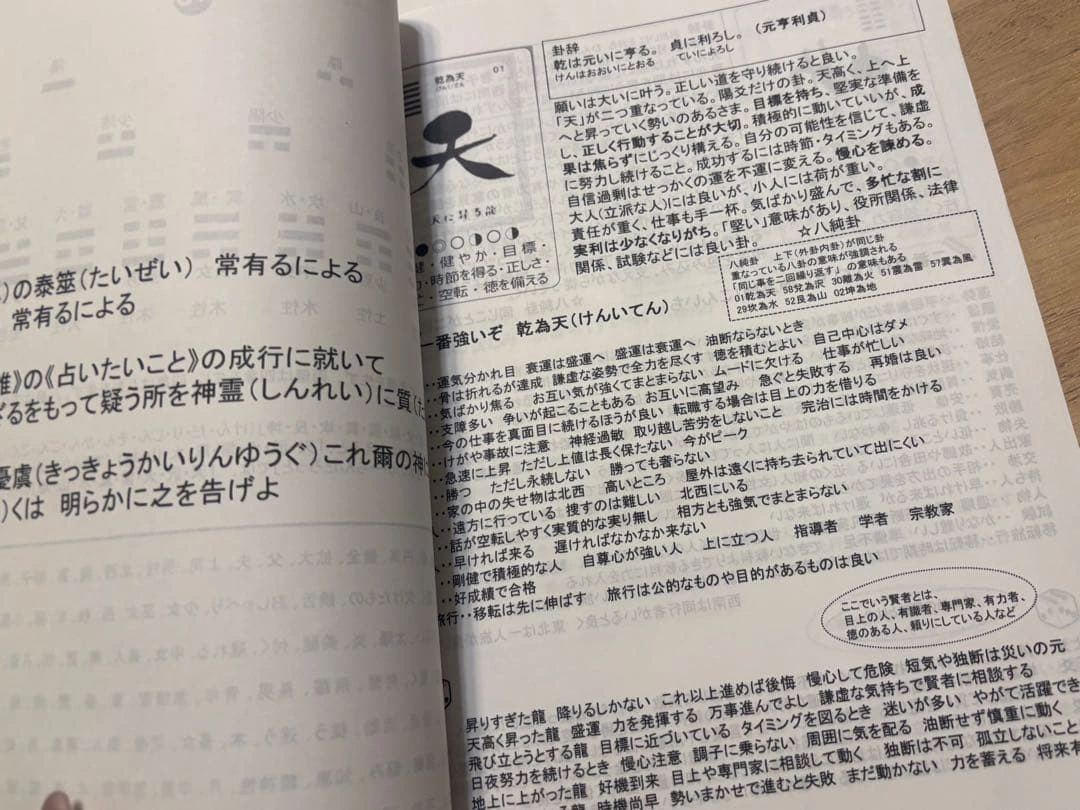 の泰筮(たいぜい) 常有るによる
常有るによる
の《占いたいこと》の成行に就いて
ざるをもって疑う所を神霊(しんれい)に質
憂虞(きっきょうかいりんゆうぐ)これ爾の神
くは 明らかに之を告げよ
乾為天
けんいてん
01
天
天に昇る龍
健・健やか・目標・
・時節を得る・正しさ・
・空転・徳を備える
卦辞
乾は元いに亨る。 貞に利ろし。 (元亨利貞)
けんはおおいにとおる ていによろし
願いは大いに叶う。正しい道を守り続けると良い。
「天」が二つ重なっている。陽爻だけの卦。天高く、上へ上
へと昇っていく勢いのあるさま。目標を持ち、堅実な準備を
し、正しく行動することが大切。積極的に動いていいが、成
果は焦らずにじっくり構える。自分の可能性を信じて、謙虚
に努力し続けること。成功するには時節・タイミングもある。
自信過剰はせっかくの運を不運に変える。慢心を諫める。
大人(立派な人)には良いが、小人には荷が重い。
責任が重く、仕事も手一杯。気ばかり盛んで、多忙な割に
実利は少なくなりがち。「堅い」意味があり、役所関係、法律
関係、試験などには良い卦。 ☆八純卦
八純卦 上下(外卦内卦)が同じ卦
重なっている八卦の意味が強調される
「同じ事を二回繰り返す」の意味もある
01乾為天 58兌為沢 30離為火 51震為雷 57巽為風
29坎為水 52艮為山 02坤為地
一番強いぞ 乾為天(けんいてん)
‥運気分かれ目 衰運は盛運へ 盛運は衰運へ 油断ならないとき
‥骨は折れるが達成 謙虚な姿勢で全力を尽くす 徳を積むとよい 自己中心はダメ
‥気ばかり焦る お互い気が強くてまとまらない ムードに欠ける 仕事が忙しい
‥支障多い 争いが起こることもある お互いに高望み 急ぐと失敗する 再婚は良い
‥今の仕事を真面目に続けるほうが良い 転職する場合は目上の力を借りる
‥けがや事故に注意 神経過敏 取り越し苦労をしないこと 完治には時間をかける
‥急速に上昇 ただし上値は長く保たない 今がピーク
‥勝つ ただし永続しない 勝っても奢らない
‥家の中の失せ物は北西 高いところ 屋外は遠くに持ち去られていて出にくい
‥遠方に行っている 捜すのは難しい 北西にいる
‥話が空転しやすく実質的な実り無し 相方とも強気でまとまらない
‥早ければ来る 遅ければなかなか来ない
‥剛健で積極的な人 自尊心が強い人 上に立つ人 指導者 学者 宗教家
‥好成績で合格
旅行‥移転は先に伸ばす 旅行は公的なものや目的があるものは良い
ここでいう賢者とは、
目上の人、有識者、専門家、有力者、
徳のある人、頼りにしている人など
昇りすぎた龍 降りるしかない これ以上進めば後悔 慢心して危険 短気や独断は災いの元
天高く昇った龍 盛運 力を発揮する 万事進んでよし 謙虚な気持ちで賢者に相談する
飛び立とうとする龍 目標に近づいている タイミングを図るとき 迷いが多い やがて活躍でき
日夜努力を続けるとき 慢心注意 調子に乗らない 周囲に気を配る 油断せず慎重に動く
地上に上がった龍 好機到来 目上や専門家に相談して動く 独断は不可 孤立しないこと
る龍 時機尚早 勢いまかせで進むと失敗 まだ動かない 力を蓄える 将来有